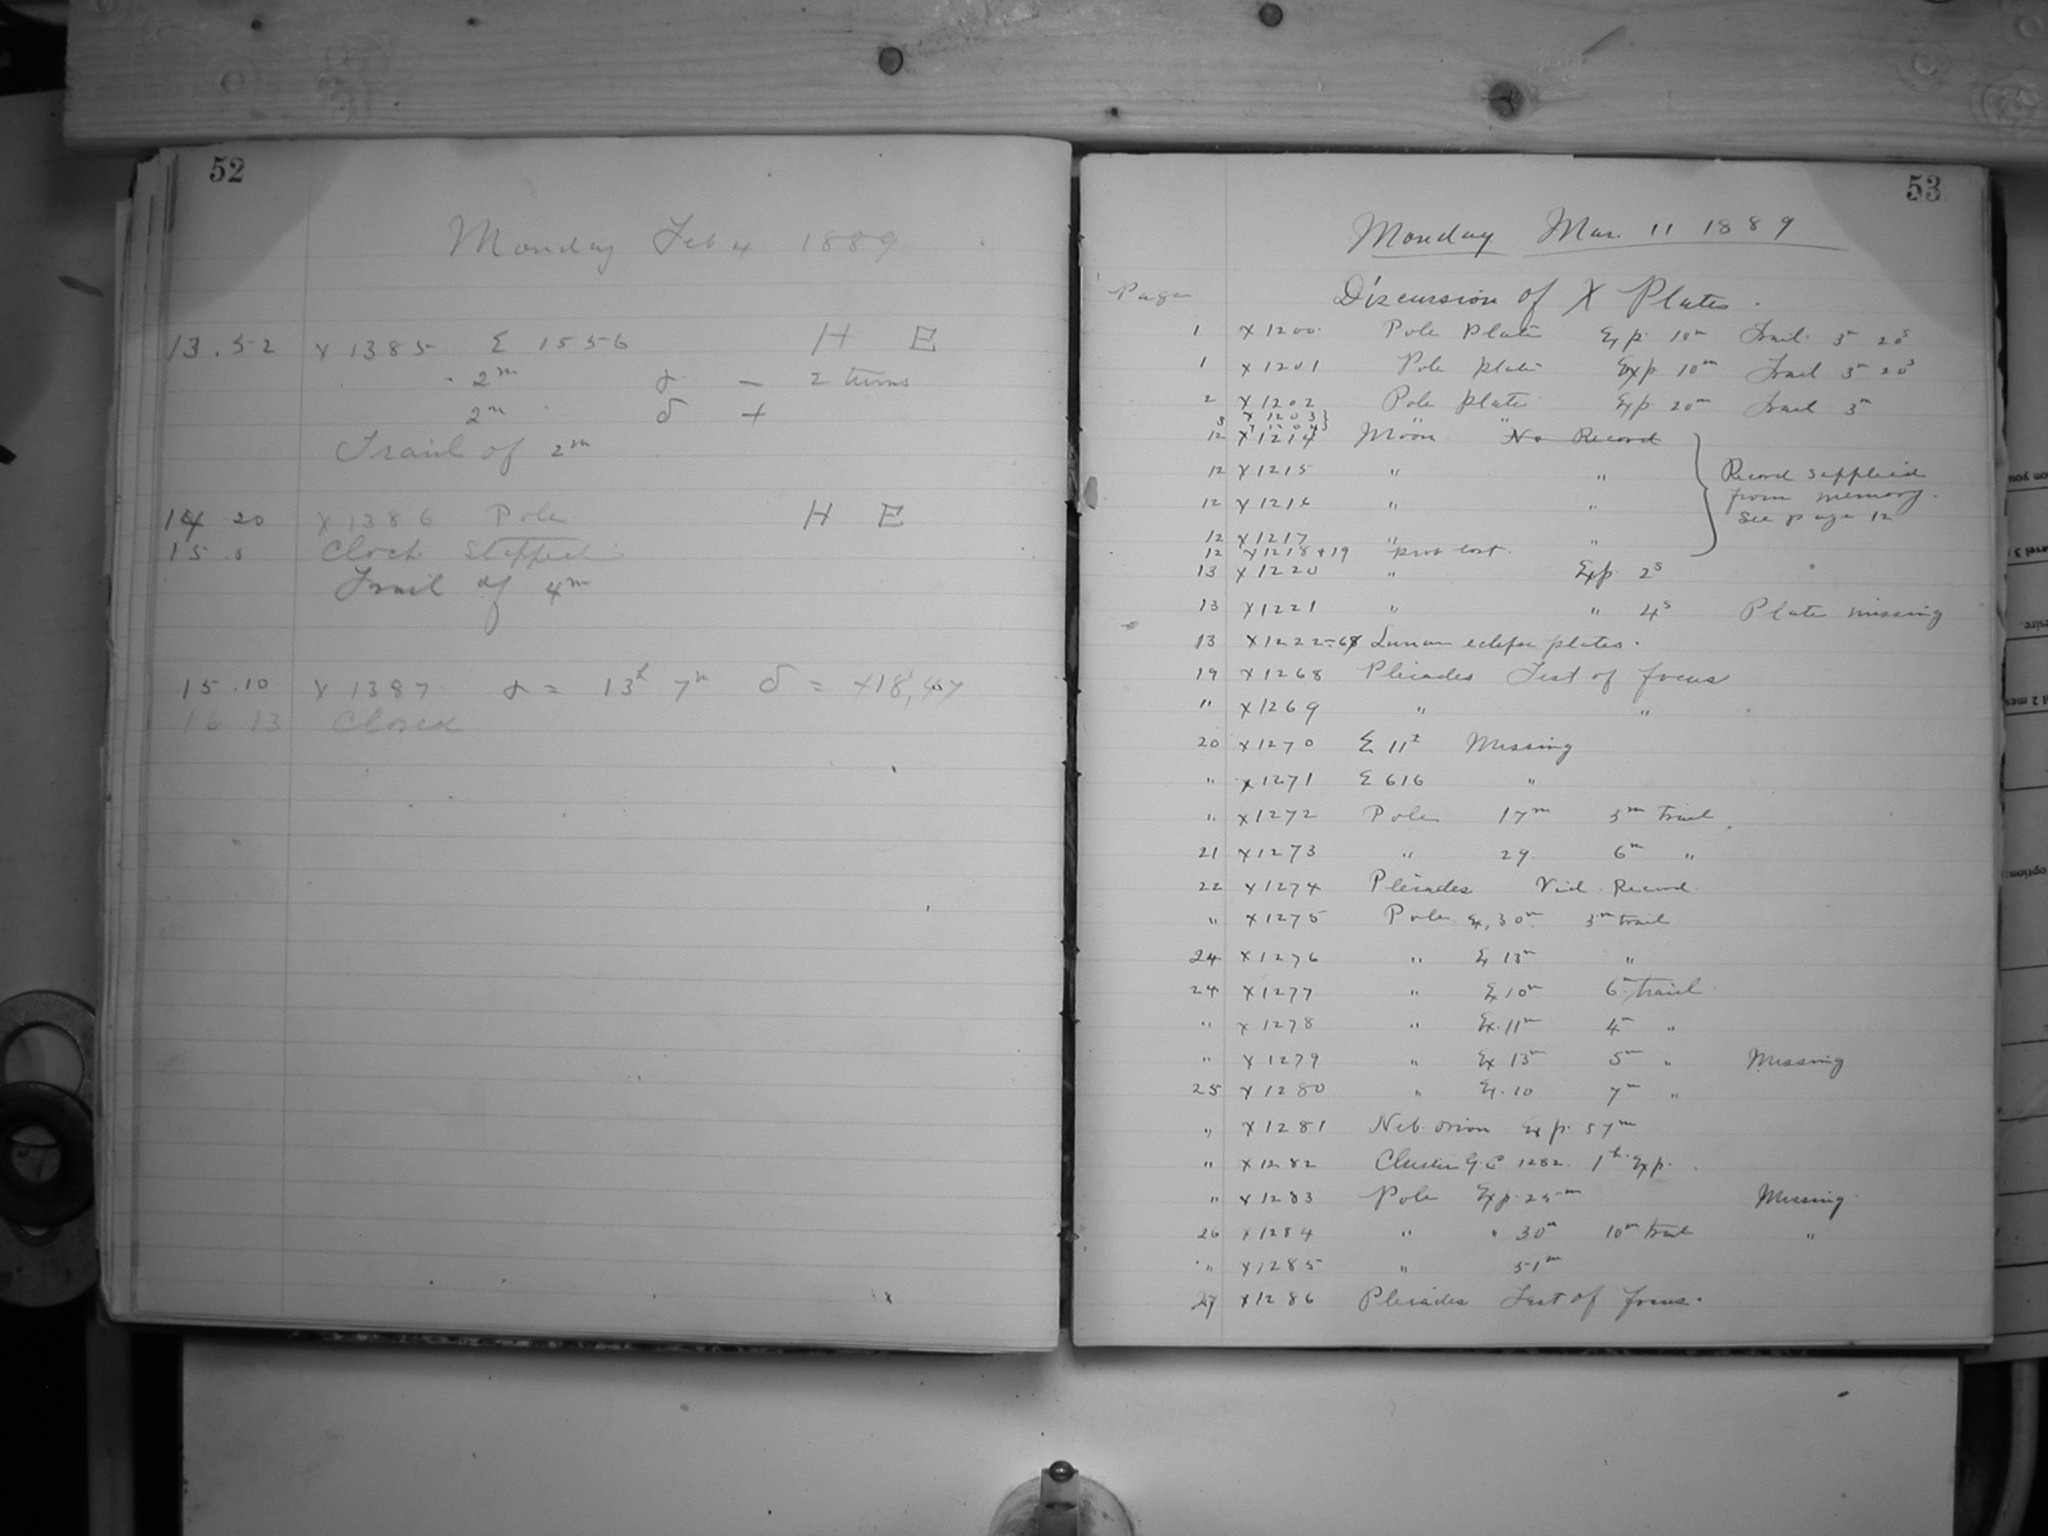 52
Monday Feb 4 1889
13.52 X 1385 Σ 1556 H E
2m α - 2 turns
2m δ +
Trail of 2m
14 20 X 1386 Pole H E
15.8 Clock stopped
Trail of 4m
15.10 X 1387 α = 13h 7m δ = +18,
16 13 Closed
53
Monday Mar. 11 1889
Page Discussion of X Plates.
1 X 1200 Pole Plate Exp. 10m Trail 3m 20s
1 X 1201 Pole plate Exp 10m Trail 3m 20s
2 X 1202 Pole plate Exp 20m Trail 3m
3 X 1203 } " "
X 1204 }
12 X 1214 Moon No Record
12 X 1215 " "
12 X 1216 " "
12 X 1217 " "
Record supplied
from memory.
See page 12
12 X 1218+19 prob lost.
13 X 1220 " Exp 2s
13 X 1221 " " 4s Plate missing
13 X 1222-67 Lunar eclipse plates.
19 X 1268 Pleiades Test of focus
" X 1269 " "
20 X 1270 Σ II Missing
" X 1271 Σ 616 "
" X 1272 Pole 17m 5m trail
21 X 1273 " 29. 6m "
22 X 1274 Pleiades Vid. Record
" X 1275 Pole Ex. 30m 3m trail
24 X 1276 " Ex 13m "
24 X 1277 " Ex 10m 6m trail
" X 1278 " Ex. 11m 4m "
" X 1279 " Ex 13m 5m " Missing
25 X 1280 " Ex. 10 7m "
" X 1281 Neb Orion Exp. 57m
" X 1282 Cluster G.C 1282. 1h. Exp.
" X 1283 Pole Exp. 25m Missing
26 X 1284 " " 30m 10m trail "
" X 1285 " 51m
27 X 1286 Pleiades Test of focus.